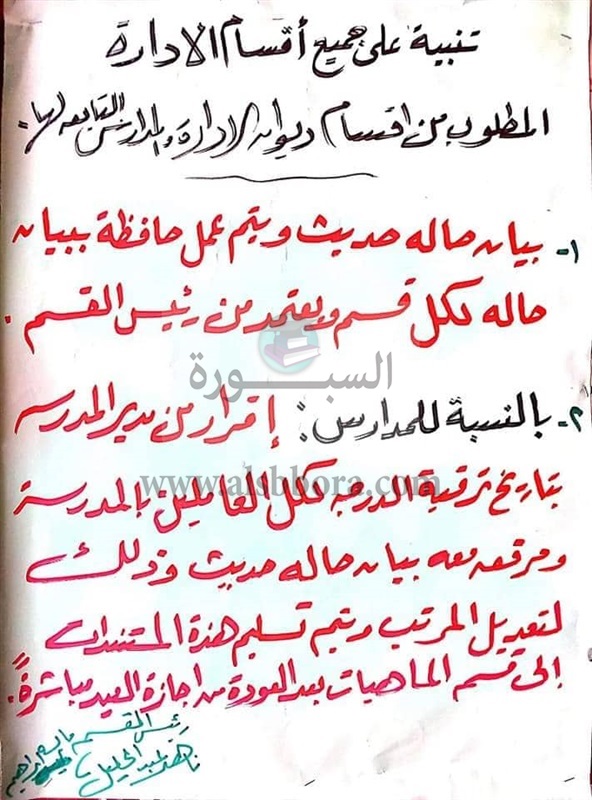 تنبية على جميع أقسام الادارة
المطلوب من اقسام ديوان الادارة والمدارس التابعه لها:
١- بيان حاله حديث ويتم عمل حافظة ببيان
حاله لكل قسم ويعتمد من رئيس القسم .
السبورة
٢- بالنسبة للمدارس : إقرار من مدير المدرسه
www.alsbbora.com
بتاريخ ترقية الدرجه لكل العاملين بالمدرسة
ومرفعه معه بيان حاله حديث وذلك
لتعديل المرتب ويتم تسليم هذة المستندات
إلى قسم الماهيات بعد العودة من اجازة العيد مباشرةً.
رئيس القسم